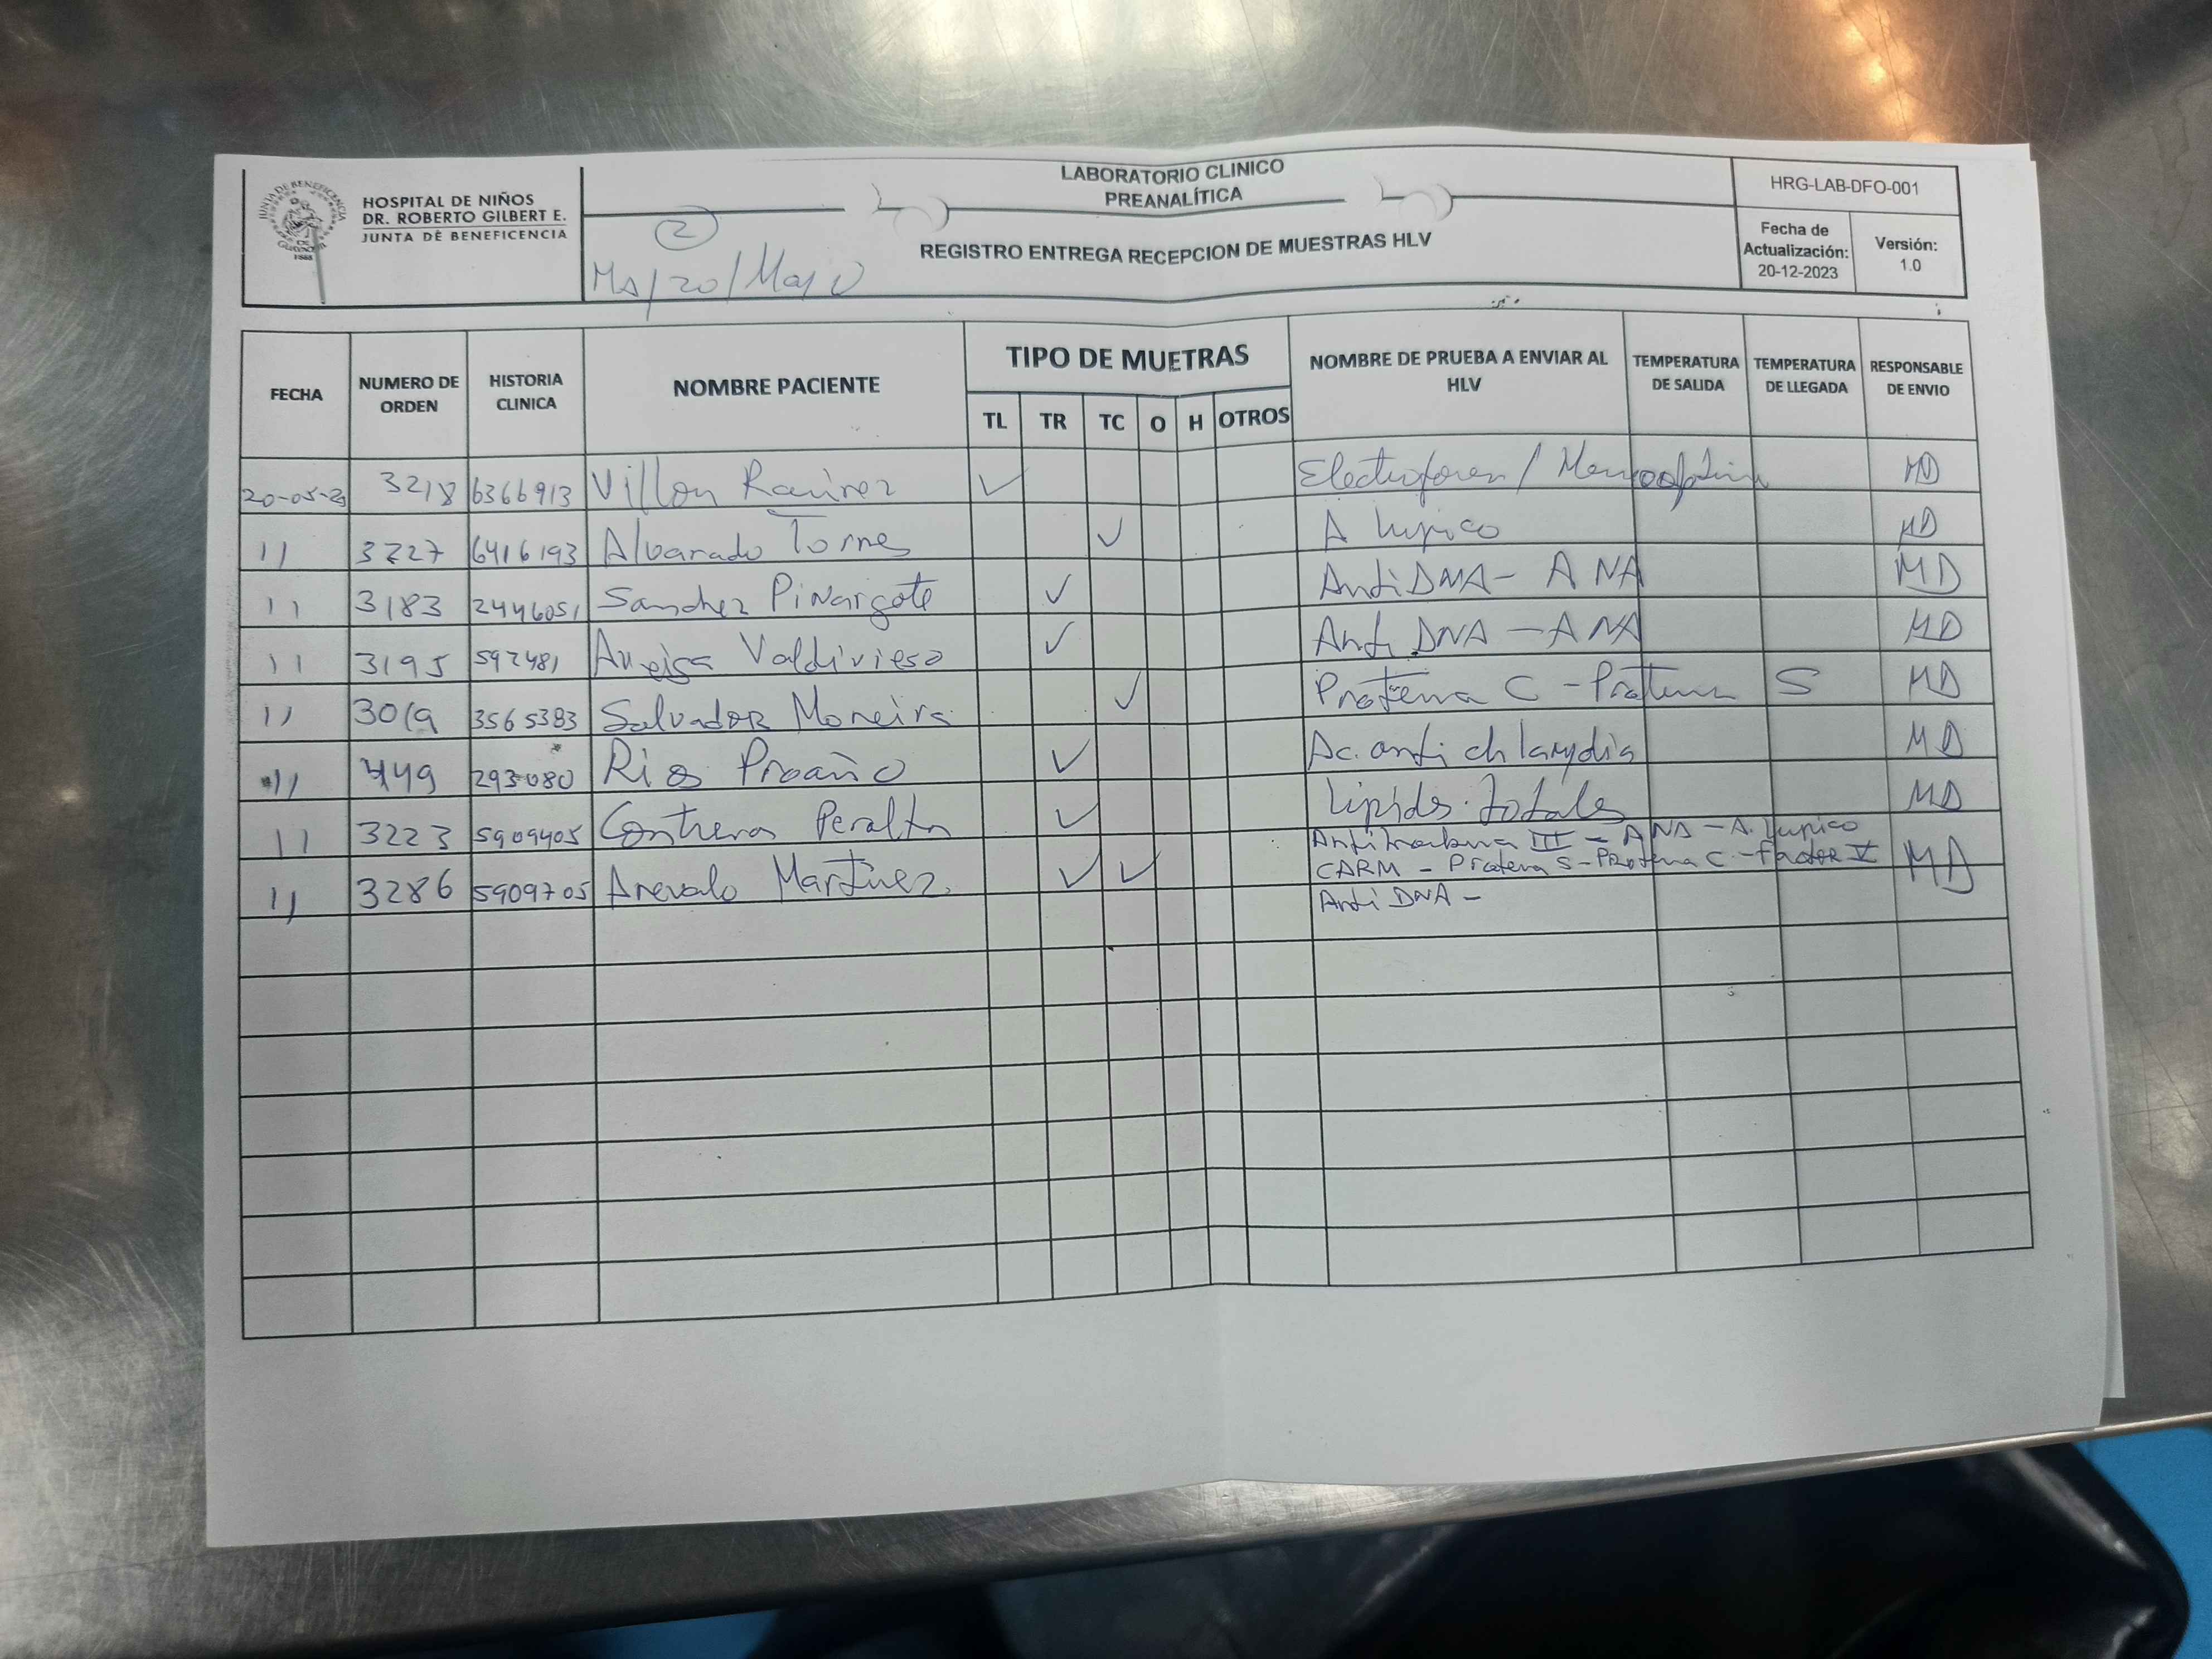 HOSPITAL DE NIÑOS
DR. ROBERTO GILBERT E.
JUNTA DE BENEFICENCIA
LABORATORIO CLINICO
PREANALÍTICA
REGISTRO ENTREGA RECEPCION DE MUESTRAS HLV
HRG-LAB-DFO-001
Fecha de Actualización: 20-12-2023
Versión: 1.0
2
Ma/20/Mayo
FECHA NUMERO DE ORDEN HISTORIA CLINICA NOMBRE PACIENTE TIPO DE MUETRAS NOMBRE DE PRUEBA A ENVIAR AL HLV TEMPERATURA DE SALIDA TEMPERATURA DE LLEGADA RESPONSABLE DE ENVIO
TL TR TC O H OTROS
3218 6366913 Villon Ramirez ✓ MD
11 3227 6416193 Alvarado Torres ✓ A lupico MD
11 3183 2446051 Sanchez Pinargote ✓ Anti DNA - ANA MD
11 3195 592481 Valdivieso ✓ Anti DNA - ANA MD
11 3019 3565383 Salvador Moreira ✓ Proteina C - Proteina S MD
11 449 293080 Rios Proaño ✓ Ac. anti chlamydia MD
11 3223 5909405 Contreras Peralta ✓ Lipidos totales MD
11 3286 5909705 Arevalo Martinez ✓ ✓ Antitrombina III - ANA - A. lupico
CARM - Proteina S - Proteina C - Factor V MD
Anti DNA -